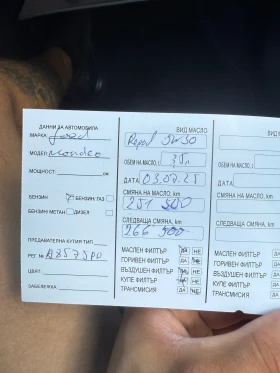 ДАННИ ЗА АВТОМОБИЛА
МАРКА Ford
МОДЕЛ Mondeo
МОЩНОСТ:
БЕНЗИН БЕНЗИН ГАЗ
БЕНЗИН МЕТАН ДИЗЕЛ
ПРЕДАВАТЕЛНА КУТИЯ ТИП
РЕГ. №
ЦВЯТ:
ЗАБЕЛЕЖКА:
ВИД МАСЛО
Repsol 5W30
ОБЕМ НА МАСЛО, l
ДАТА 03.07.25
СМЯНА НА МАСЛО, km
251 500
СЛЕДВАЩА СМЯНА, km
266 500
МАСЛЕН ФИЛТЪР ДА НЕ
ГОРИВЕН ФИЛТЪР ДА НЕ
ВЪЗДУШЕН ФИЛТЪР ДА НЕ
КУПЕ ФИЛТЪР ДА НЕ
ТРАНСМИСИЯ ДА НЕ
ВИД МАСЛО
ОБЕМ НА МАСЛО, l
ДАТА
СМЯНА НА МАСЛО, km
СЛЕДВАЩА СМЯНА, km
МАСЛЕН ФИЛТЪР
ГОРИВЕН ФИЛТЪР
ВЪЗДУШЕН ФИЛТЪР
КУПЕ ФИЛТЪР
ТРАНСМИСИЯ